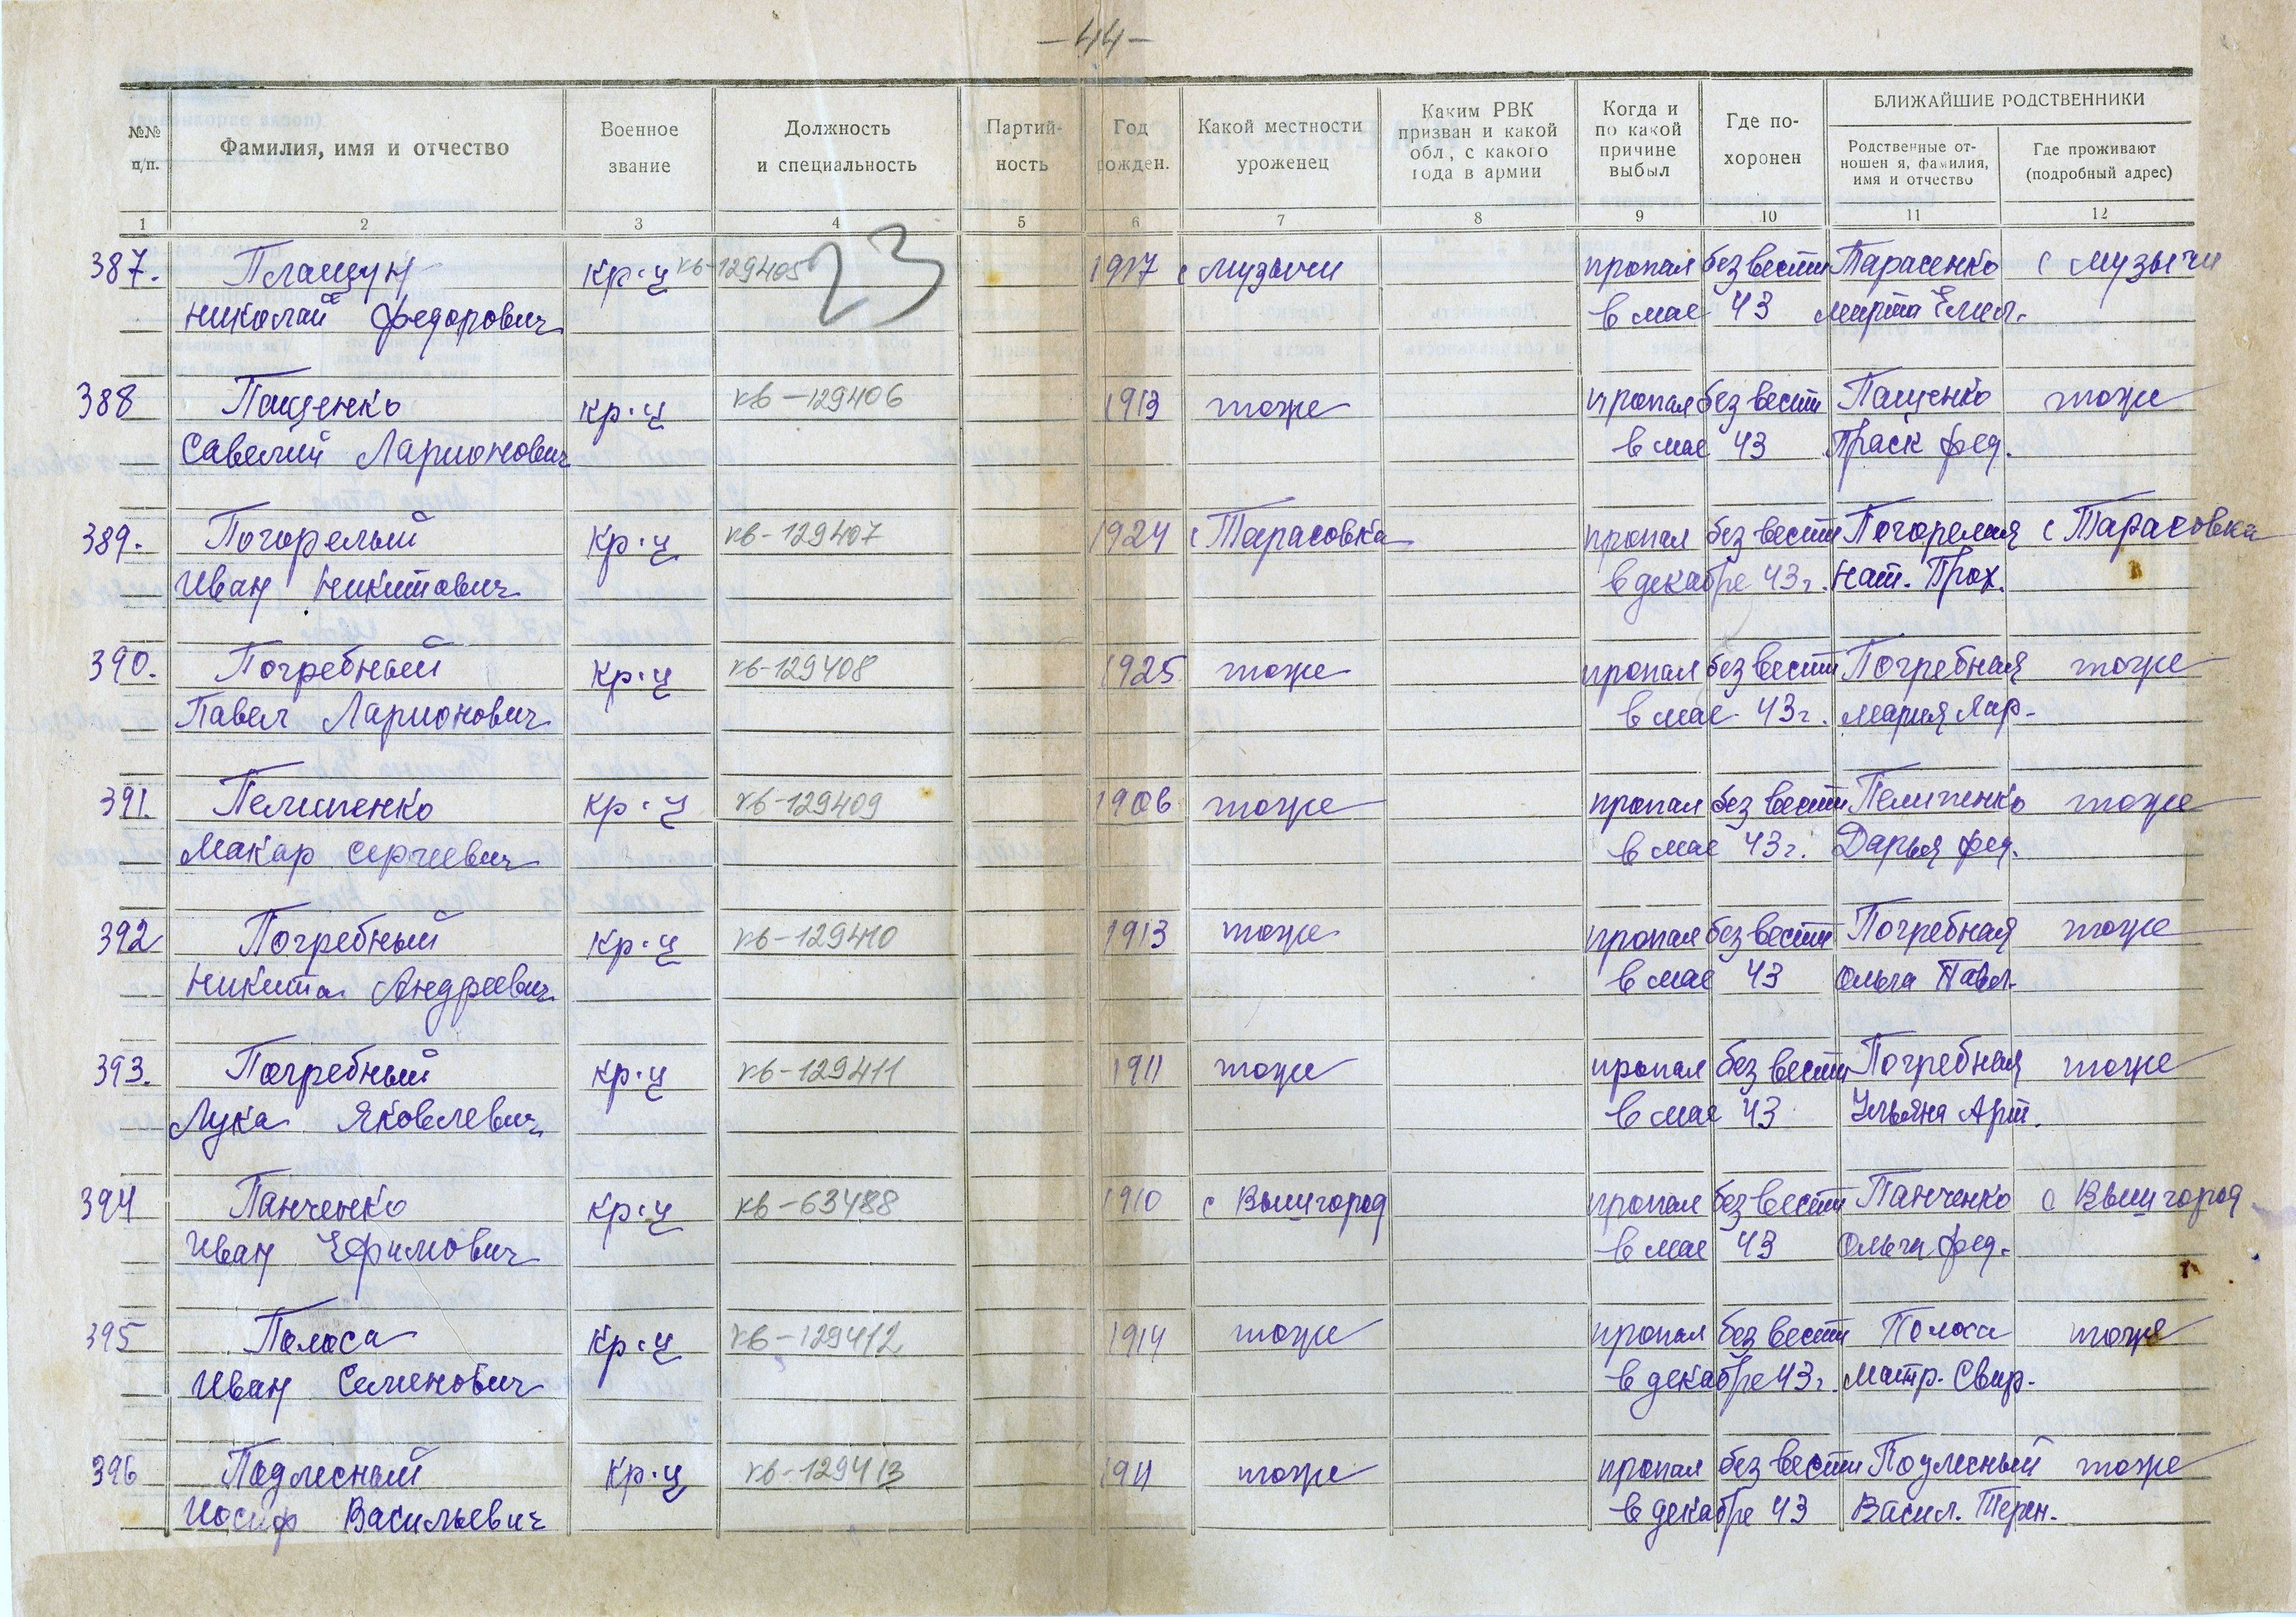 -44-
БЛИЖАЙШИЕ РОДСТВЕННИКИ
№№ п/п.
Фамилия, имя и отчество
Военное звание
Должность и специальность
Партийность
Год рожден.
Какой местности уроженец
Каким РВК призван и какой обл, с какого года в армии
Когда и по какой причине выбыл
Где похоронен
Родственные отношен я, фамилия, имя и отчество
Где проживают (подробный адрес)
1 2 3 4 5 6 7 8 9 10 11 12
23
387. Плащун кр-ц кв-129405 1917 с Музычи пропал без вести Тарасенко с Музычи
Николай Федорович в мае 43 Марта Емел.
388 Пащенко кр-ц кв-129406 1913 тоже пропал без вести Пащенко тоже
Савелий Ларионович в мае 43 Праск Фед.
389. Погорелый кр-ц кв-129407 1924 с Тарасовка пропал без вести Погорелая с Тарасовка
Иван Никитович в декабре 43г. Нат. Прох.
390. Погребный кр-ц кв-129408 1925 тоже пропал без вести Погребная тоже
Павел Ларионович в мае 43г. Мария Лар-
391. Пелипенко кр-ц кв-129409 1906 тоже пропал без вести Пелипенко тоже
Макар Сергеевич в мае 43г. Дарья Фед.
392 Погребный кр-ц кв-129410 1913 тоже пропал без вести Погребная тоже
Никита Андреевич в мае 43 Ольга Павл.
393. Погребный кр-ц кв-129411 1911 тоже пропал без вести Погребная тоже
Лука Яковлевич в мае 43 Ульяна Арт.
394 Панченко кр-ц кв-63488 1910 с Вышгород пропал без вести Панченко с Вышгород
Иван Ефимович в мае 43 Ольга Фед.
395 Полоса кр-ц кв-129412 1914 тоже пропал без вести Полоса тоже
Иван Семенович в декабре 43г. Матр. Свир.
396 Подлесный кр-ц кв-129413 1911 тоже пропал без вести Подлесный тоже
Иосиф Васильевич в декабре 43 Васил. Терен.